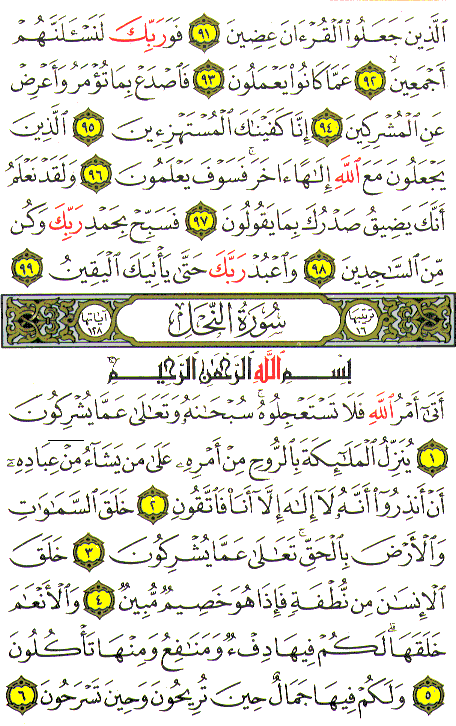 ٱلَّذِينَ جَعَلُوا۟ ٱلْقُرْءَانَ عِضِينَ ٩١ فَوَرَبِّكَ لَنَسْـَٔلَنَّهُمْ
أَجْمَعِينَ ٩٢ عَمَّا كَانُوا۟ يَعْمَلُونَ ٩٣ فَٱصْدَعْ بِمَا تُؤْمَرُ وَأَعْرِضْ
عَنِ ٱلْمُشْرِكِينَ ٩٤ إِنَّا كَفَيْنَـٰكَ ٱلْمُسْتَهْزِءِينَ ٩٥ ٱلَّذِينَ
يَجْعَلُونَ مَعَ ٱللَّهِ إِلَـٰهًا ءَاخَرَ ۚ فَسَوْفَ يَعْلَمُونَ ٩٦ وَلَقَدْ نَعْلَمُ
أَنَّكَ يَضِيقُ صَدْرُكَ بِمَا يَقُولُونَ ٩٧ فَسَبِّحْ بِحَمْدِ رَبِّكَ وَكُن
مِّنَ ٱلسَّـٰجِدِينَ ٩٨ وَٱعْبُدْ رَبَّكَ حَتَّىٰ يَأْتِيَكَ ٱلْيَقِينُ ٩٩
ترتيبها ١٦ سُورَةُ النَّحْلِ آياتها ١٢٨
بِسْمِ ٱللَّهِ ٱلرَّحْمَـٰنِ ٱلرَّحِيمِ
أَتَىٰٓ أَمْرُ ٱللَّهِ فَلَا تَسْتَعْجِلُوهُ ۚ سُبْحَـٰنَهُۥ وَتَعَـٰلَىٰ عَمَّا يُشْرِكُونَ
١ يُنَزِّلُ ٱلْمَلَـٰٓئِكَةَ بِٱلرُّوحِ مِنْ أَمْرِهِۦ عَلَىٰ مَن يَشَآءُ مِنْ عِبَادِهِۦٓ
أَنْ أَنذِرُوٓا۟ أَنَّهُۥ لَآ إِلَـٰهَ إِلَّآ أَنَا۠ فَٱتَّقُونِ ٢ خَلَقَ ٱلسَّمَـٰوَٰتِ
وَٱلْأَرْضَ بِٱلْحَقِّ ۚ تَعَـٰلَىٰ عَمَّا يُشْرِكُونَ ٣ خَلَقَ
ٱلْإِنسَـٰنَ مِن نُّطْفَةٍ فَإِذَا هُوَ خَصِيمٌ مُّبِينٌ ٤ وَٱلْأَنْعَـٰمَ
خَلَقَهَا ۗ لَكُمْ فِيهَا دِفْءٌ وَمَنَـٰفِعُ وَمِنْهَا تَأْكُلُونَ
٥ وَلَكُمْ فِيهَا جَمَالٌ حِينَ تُرِيحُونَ وَحِينَ تَسْرَحُونَ ٦